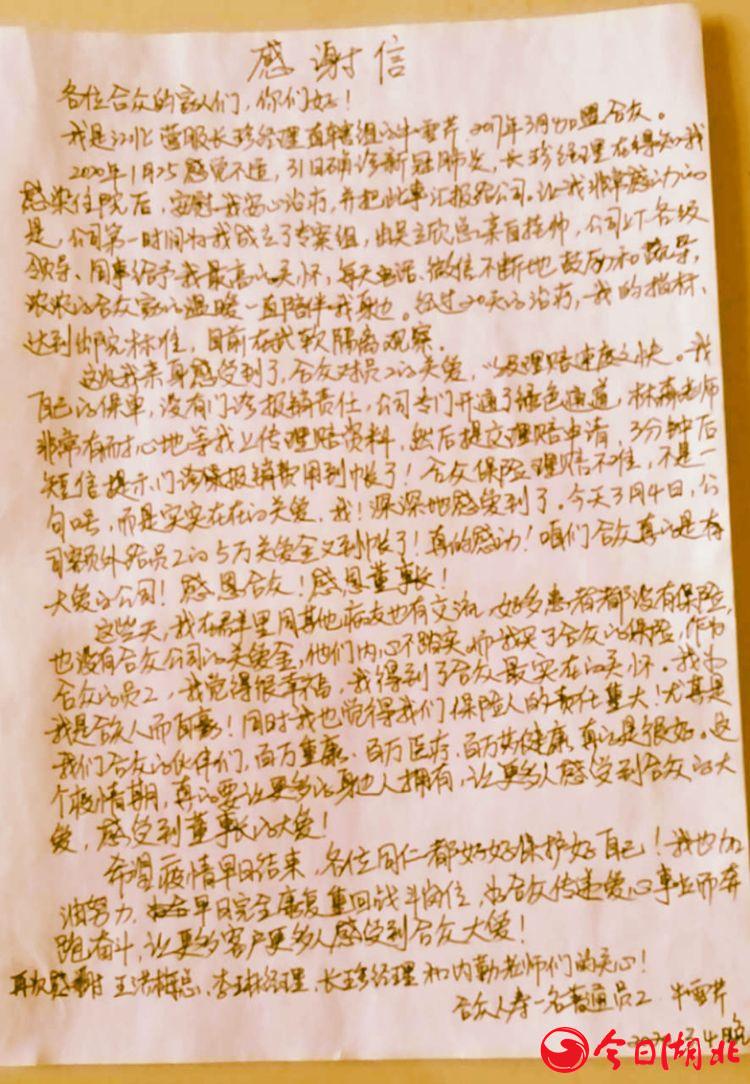 感谢信
各位合众的家人们，你们好！
我是江北营服长珍经理直辖组的牛雪芹，2017年3月加盟合众。
2020年1月25感觉不适，31日确诊新冠肺炎，长珍经理在得知我
感染住院后，安慰我安心治疗，并把此事汇报给公司。让我非常感动的
是，公司第一时间为我成立了专案组，由吴立欣总亲自挂帅，公司上下各级
领导、同事给予我最高的关怀，每天电话、微信不断地鼓励和疏导，
浓浓的合众家的温暖一直陪伴我身边。经过20天的治疗，我的指标、
达到出院标准，目前在武软隔离观察。
这次我亲身感受到了，合众对员工的关爱，以及理赔速度之快。我
自己的保单，没有门诊报销责任，公司专门开通了绿色通道，林森老师
非常有耐心地等我上传理赔资料，然后提交理赔申请，3分钟后
短信提示，门诊保报销费用到帐了！合众保险理赔不难，不是一
句口号，而是实实在在的关爱，我！深深地感受到了。今天3月4日，公
司额外给员工的5万关爱金又到帐了！真的感动！咱们合众真的是有
大爱的公司！感恩合众！感恩董事长！
这些天，我在群里同其他病友也有交流，好多患者都没有保险，
也没有合众公司的关爱金，他们内心不踏实，而我买了合众的保险，作为
合众的员工，我觉得很幸福，我得到了合众最实在的关怀。我为
我是合众人而自豪！同时我也觉得我们保险人的责任重大！尤其是
我们合众的伙伴们，百万重康、百万医疗、百万安健康真的是很好。这
个疫情期，真的要让更多的身边人拥有，让更多人感受到合众的大
爱，感受到董事长的大爱！
希望疫情早日结束，各位同仁都好好保护好自己！我也加
油努力，早日完全康复重回战斗岗位，为合众传递爱心事业而奔
跑奋斗，让更多客户更多人感受到合众大爱！
再次感谢王洪梅总、李琳经理、长珍经理和内勤老师们的关心！
合众人寿一名普通员工 牛雪芹
今日湖北